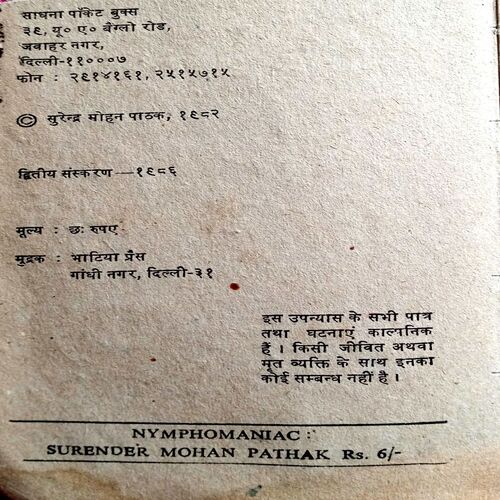 साधना पॉकेट बुक्स
३९, यू० ए० बैंग्लो रोड,
जवाहर नगर,
दिल्ली-११०००७
फोन : २९१४१६१, २५१५७१५
© सुरेन्द्र मोहन पाठक, १९८२
द्वितीय संस्करण—१९८६
मूल्य : छः रुपए
मुद्रक : भाटिया प्रैस
गांधी नगर, दिल्ली-३१
इस उपन्यास के सभी पात्र
तथा घटनाएं काल्पनिक
हैं । किसी जीवित अथवा
मृत व्यक्ति के साथ इनका
कोई सम्बन्ध नहीं है ।
NYMPHOMANIAC :
SURENDER MOHAN PATHAK Rs. 6/-